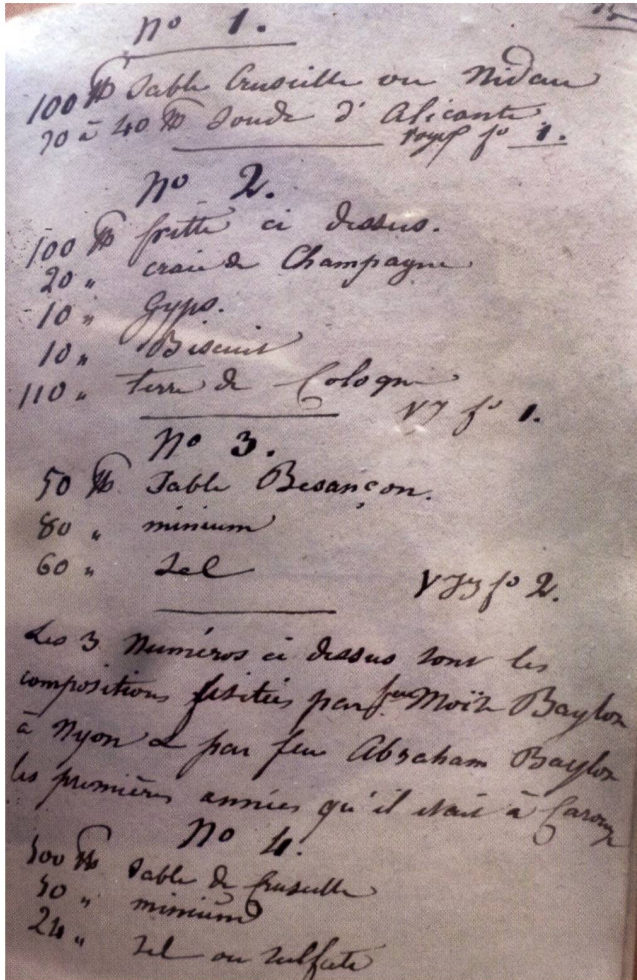 No 1.
100 ℔ Sable Cruseille ou Nidau
20 à 40 ℔ Soude d'Alicante
voyez fo 1.
No 2.
100 ℔ fritte ci dessus.
20 " craie de Champagne
10 " Gyps.
10 " Biscuit
110 " terre de Cologne
fo 1.
No 3.
50 ℔ Sable Besançon.
80 " minium
60 " Sel
fo 2.
Les 3 Numéros ci dessus sont les
compositions usitées par feu Moïse Baylon
à Nyon & par feu Abraham Baylon
les premières années qu'il était à Carouge
No 4.
100 ℔ Sable de Cruseille
50 " minium
24 " Sel ou sulfate